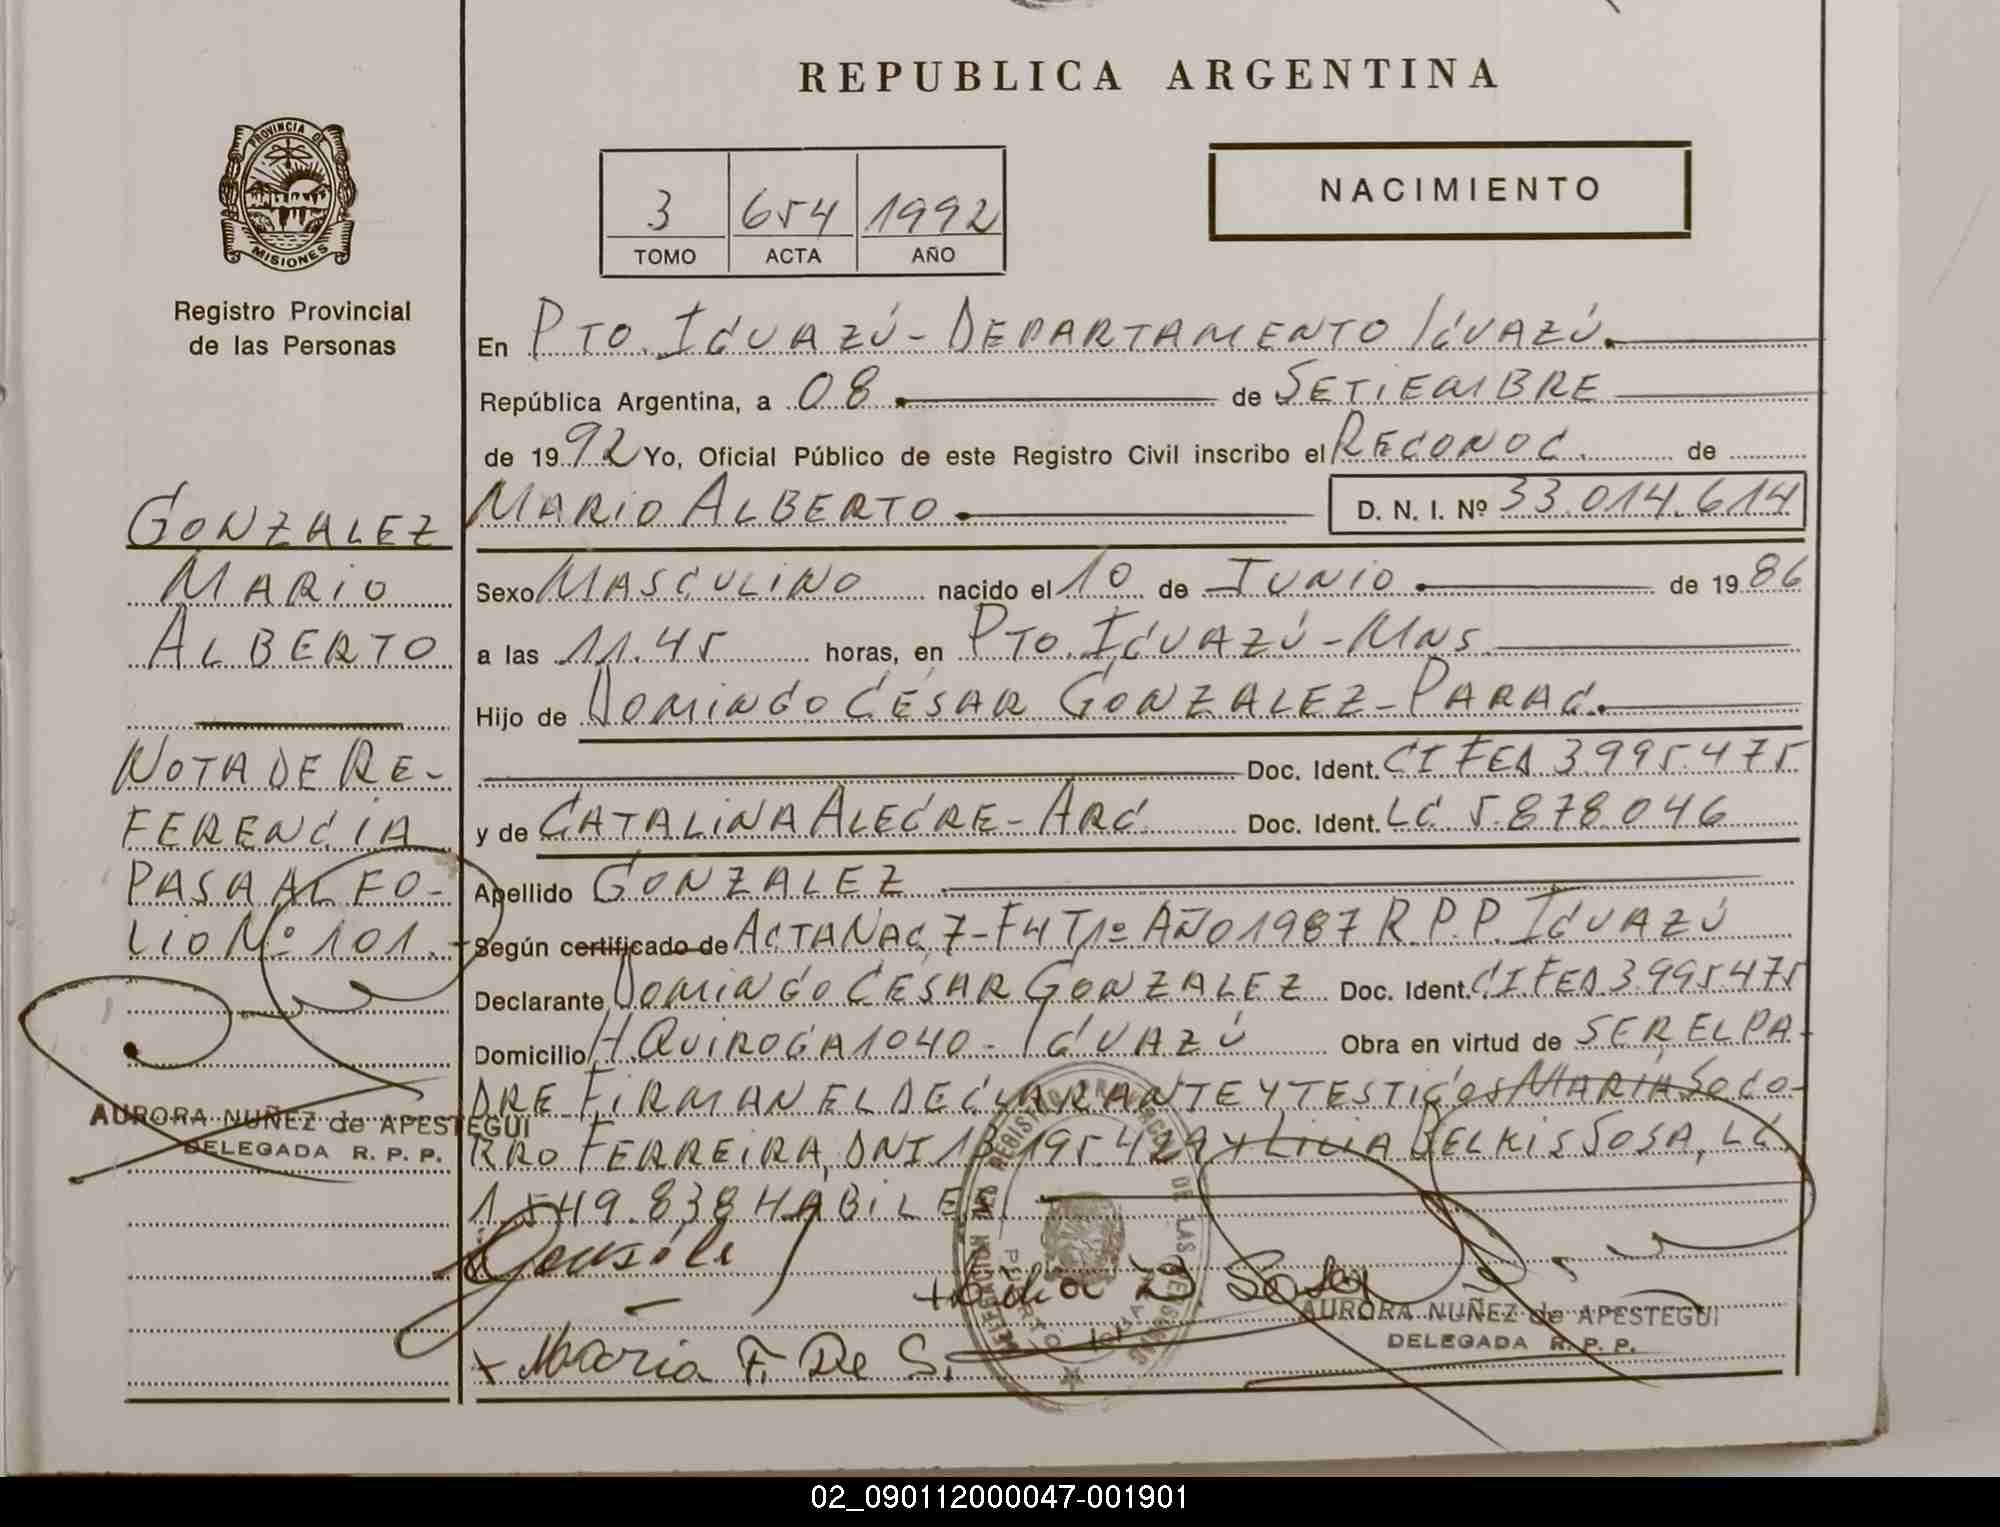 REPUBLICA ARGENTINA
PROVINCIA DE
MISIONES
Registro Provincial
de las Personas
3 654 1992
TOMO ACTA AÑO
NACIMIENTO
GONZALEZ
MARIO
ALBERTO
NOTA DE RE-
FERENCIA
PASA AL FO-
LIO Nº 101.-
AURORA NUÑEZ de APESTEGUI
DELEGADA R. P. P.
En PTO. IGUAZÚ - DEPARTAMENTO IGUAZÚ.
República Argentina, a 08 de SETIEMBRE
de 1992 Yo, Oficial Público de este Registro Civil inscribo el RECONOC. de
MARIO ALBERTO D. N. I. Nº 33.014.614
Sexo MASCULINO nacido el 10 de JUNIO de 1986
a las 11.45 horas, en PTO. IGUAZÚ - MNS
Hijo de DOMINGO CÉSAR GONZALEZ - PARAG.
Doc. Ident. CI FED 3995.475
y de CATALINA ALEGRE - ARG Doc. Ident. LC 5.878.046
Apellido GONZALEZ
Según certificado de ACTA NAC 7 - F4 T1º AÑO 1987 R.P.P. IGUAZÚ
Declarante DOMINGO CÉSAR GONZALEZ Doc. Ident. CI.FED 3.995.475
Domicilio H QUIROGA 1040 - IGUAZÚ Obra en virtud de SER EL PA-
DRE FIRMAN EL DECLARANTE Y TESTIGOS MARIA SOCO-
RRO FERREIRA, DNI 13.195.429 Y LILIA BELKIS SOSA, LC
1.549.838 HÁBILES
Lidia B. Sosa
AURORA NUÑEZ de APESTEGUI
DELEGADA R. P. P.
+ Maria F. De S.
02_090112000047-001901